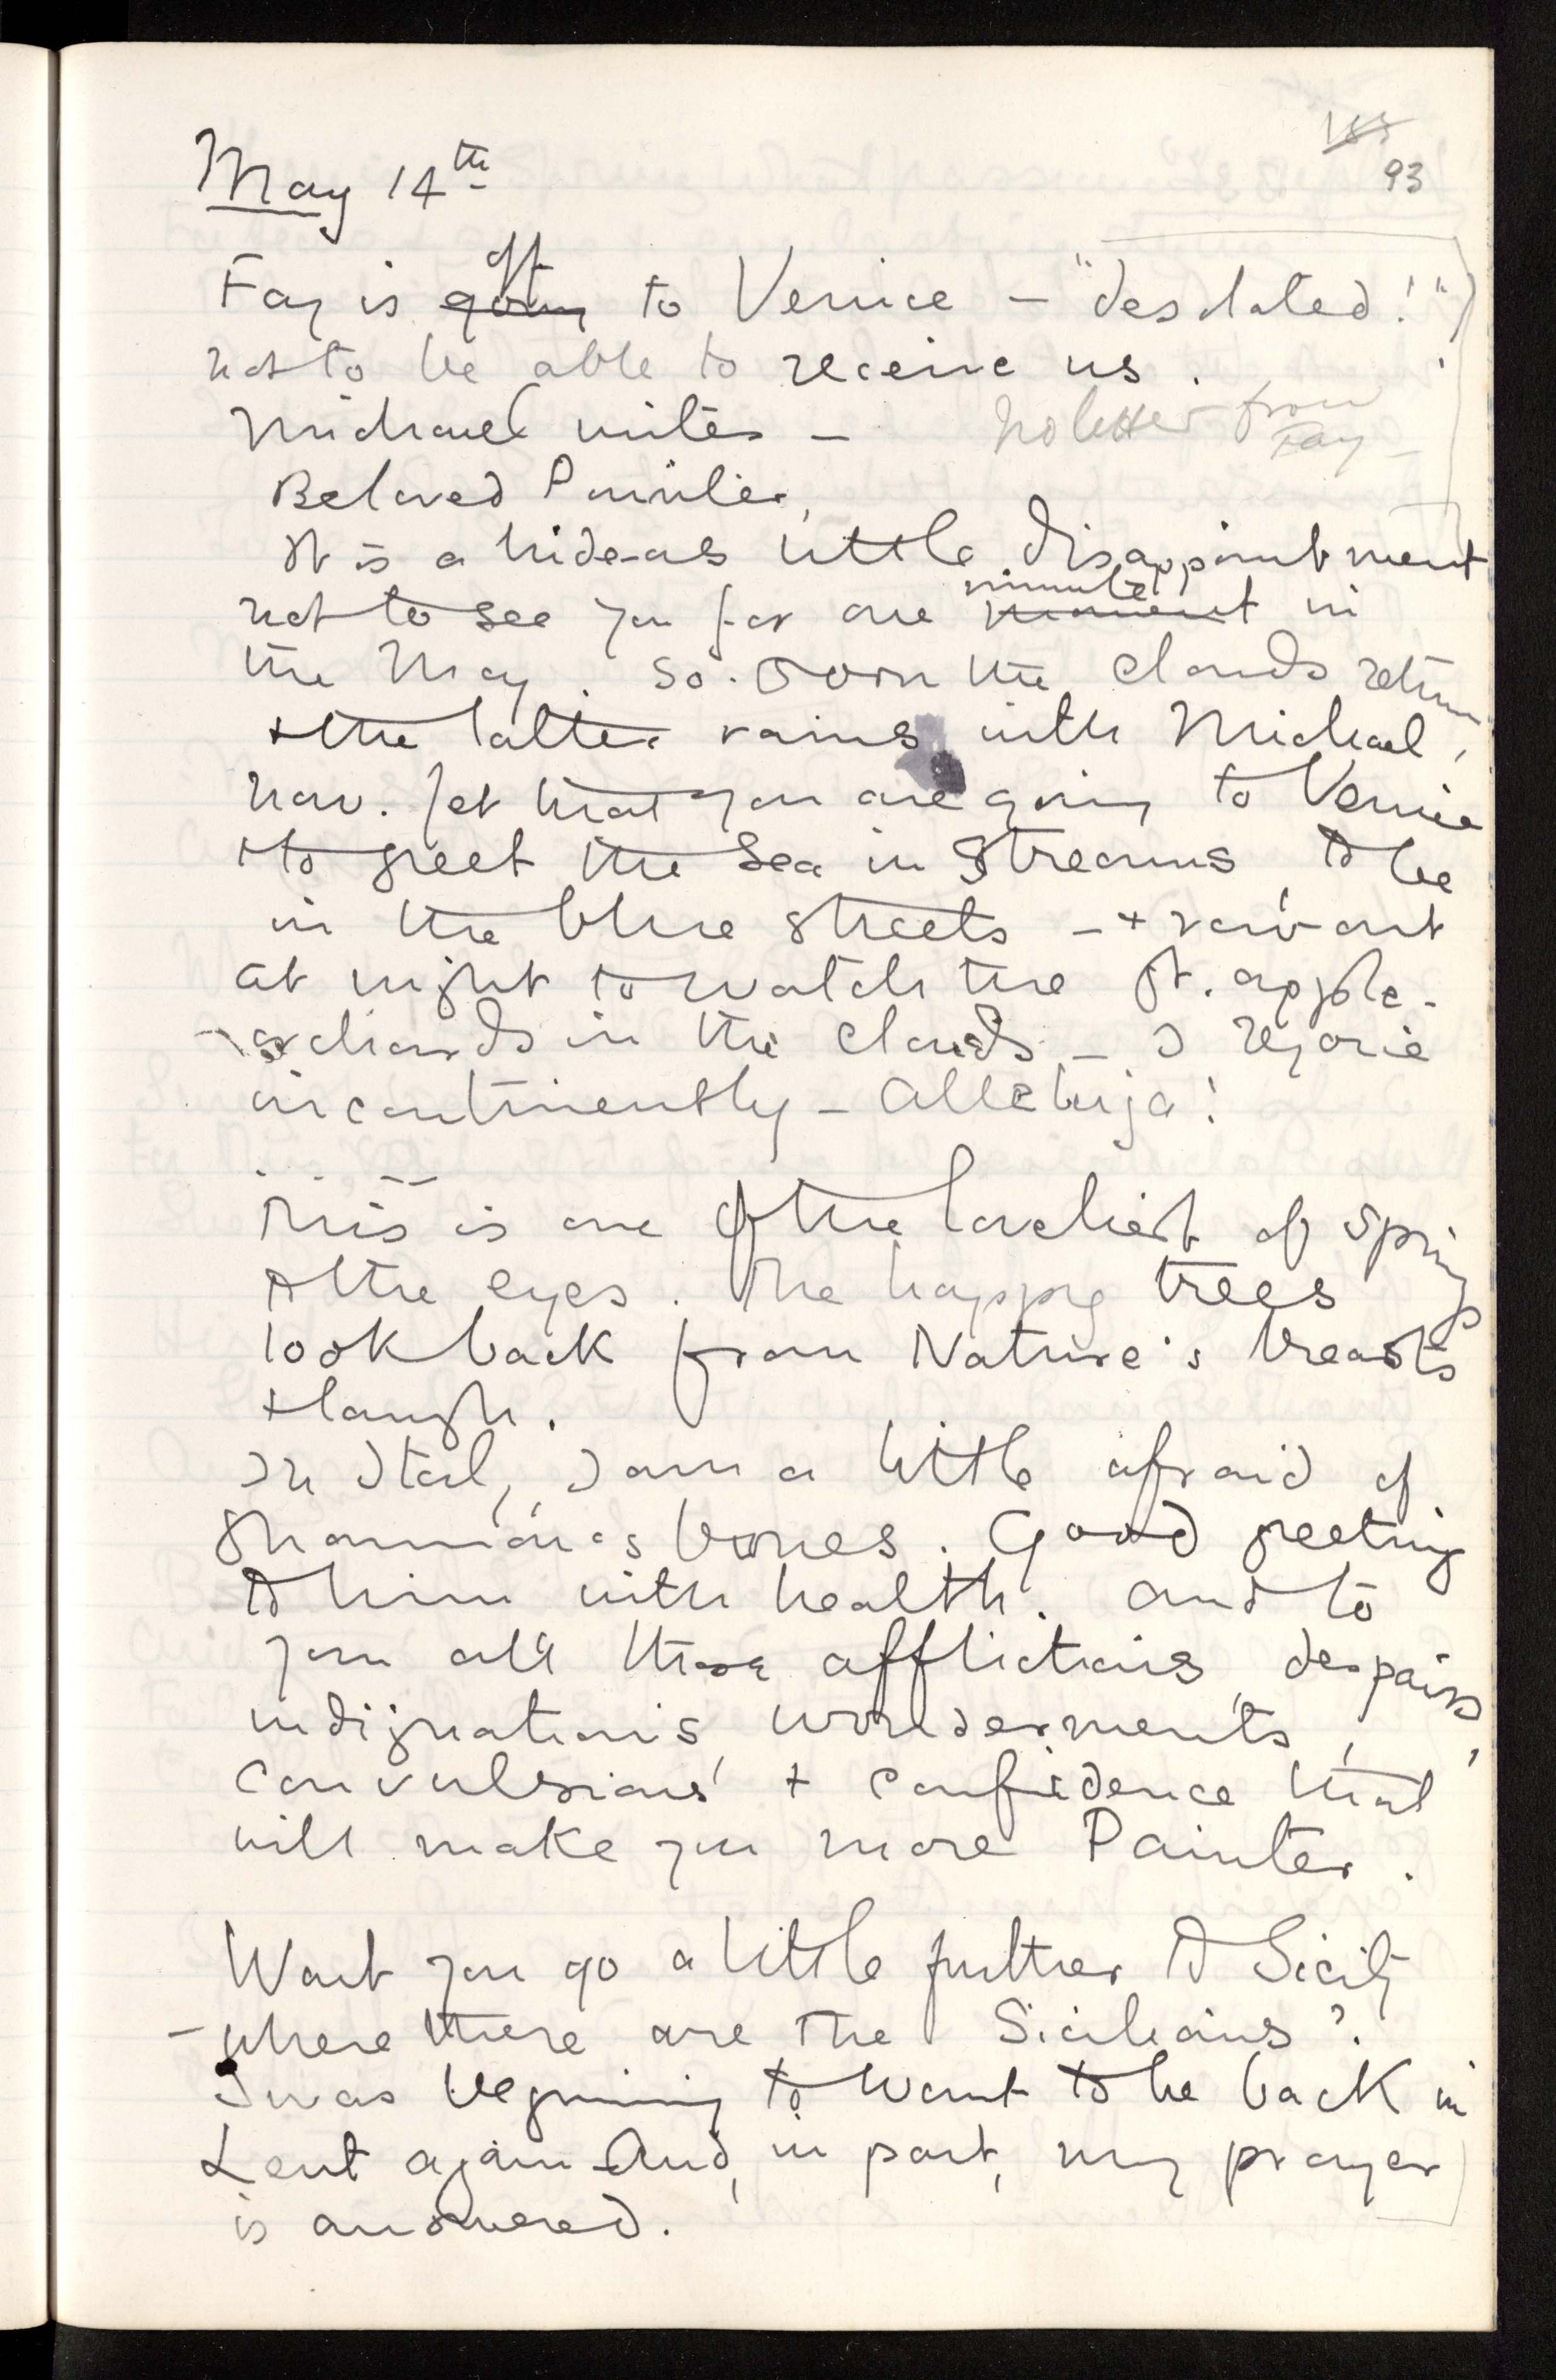 185
93
May 14th
Fay is going off to Venice – "desolated!"
not to be able to receive us.
Michael writes –
no letter from Fay –
Beloved Painter,
It is a hideous little disappointment
not to see you for one moment minute in
the May. So soon the clouds return
+ the latter rains with Michael,
now. Yet that you are going to Venice
+ to greet the Sea in Streams, to be
in the blue streets – + row out
at night to watch the apple-
orchards in the clouds – I rejoice
incontinently – Alleluja!
This is one of the loveliest of springs
to the eyes. The happy trees
look back from Nature's breasts
+ laugh.
In Italy, I am a little afraid of
Shannon's bones. Good greeting
to him with health. And to
you all those afflictions, despairs,
indignations, wonderments,
convulsions + confidence that
will make you more Painter.
Wont you go a little further to Sicily
– where there are the Sicilians?
I was beginning to want to be back in
Lent again And, in part, my prayer
is answered.